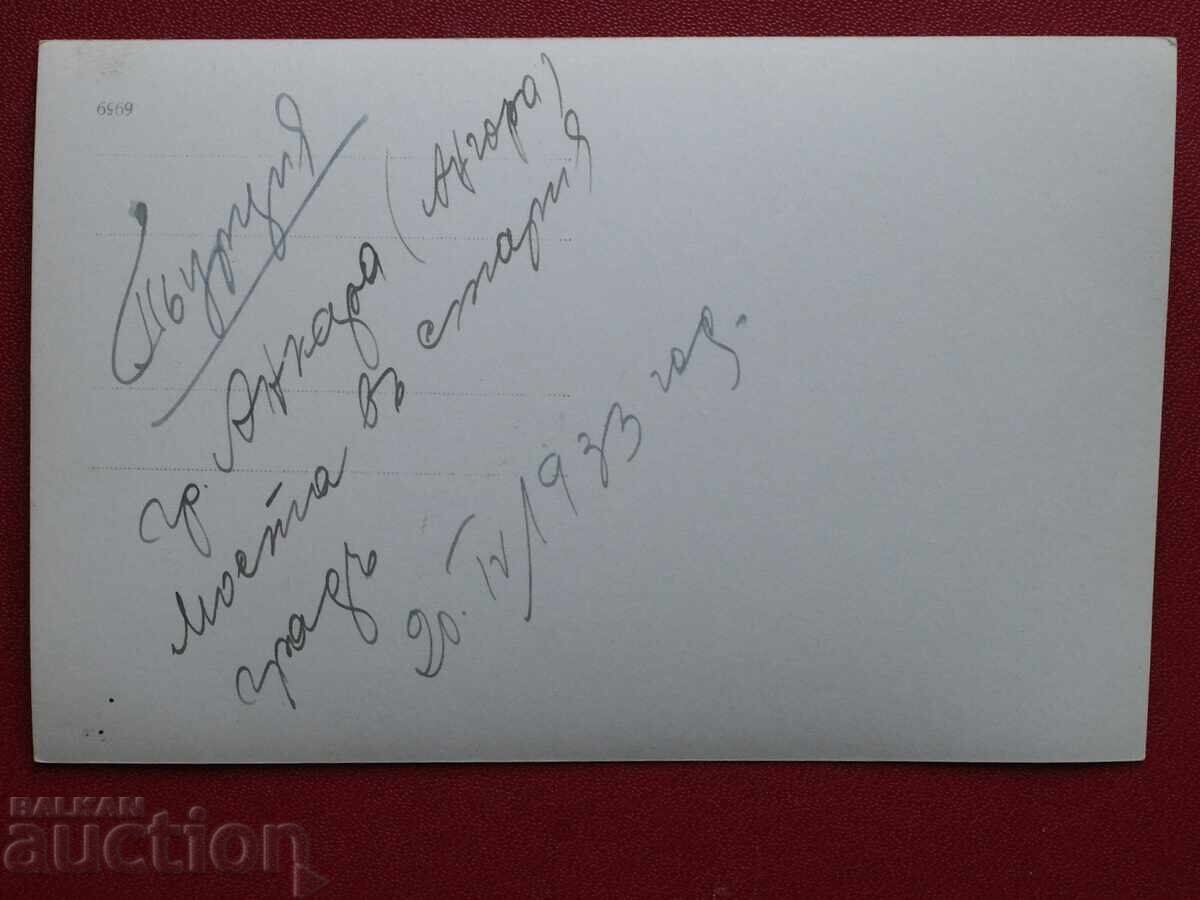 6959
Турция
гр. Анкара (Ангора)
моста въ стария
градъ
20.IV/1933 год.
BALKAN
auction